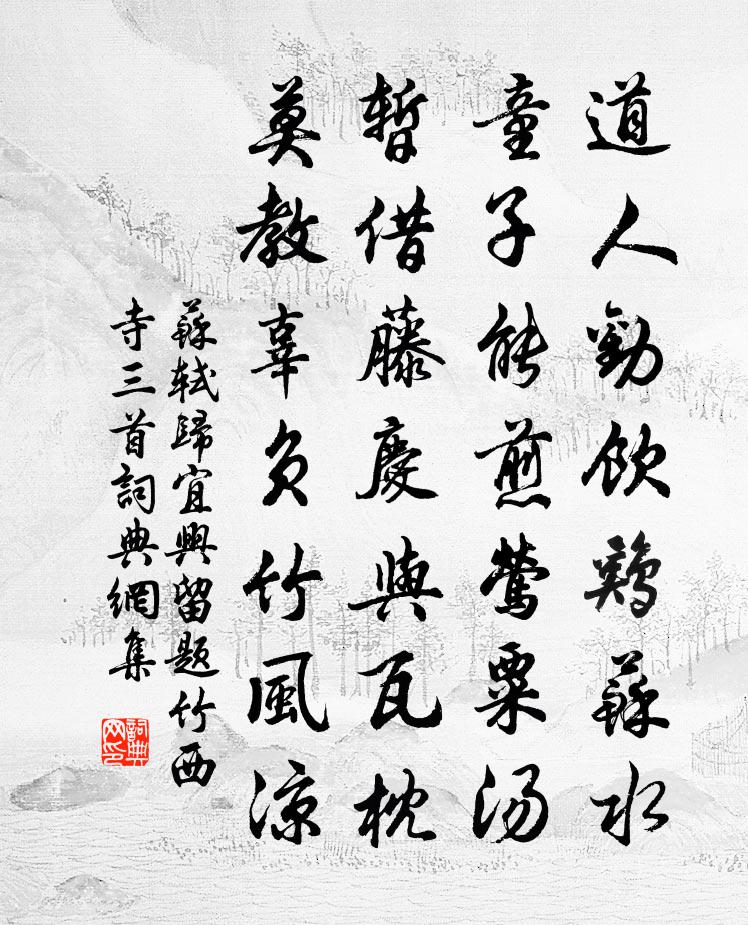 道人勸飲鷄蘇水
童子能煎鶯粟湯
暫借藤慶與瓦枕
莫教辜負竹風涼
蘇軾歸宜興留題竹西
寺三首詞典網集
詞典网印